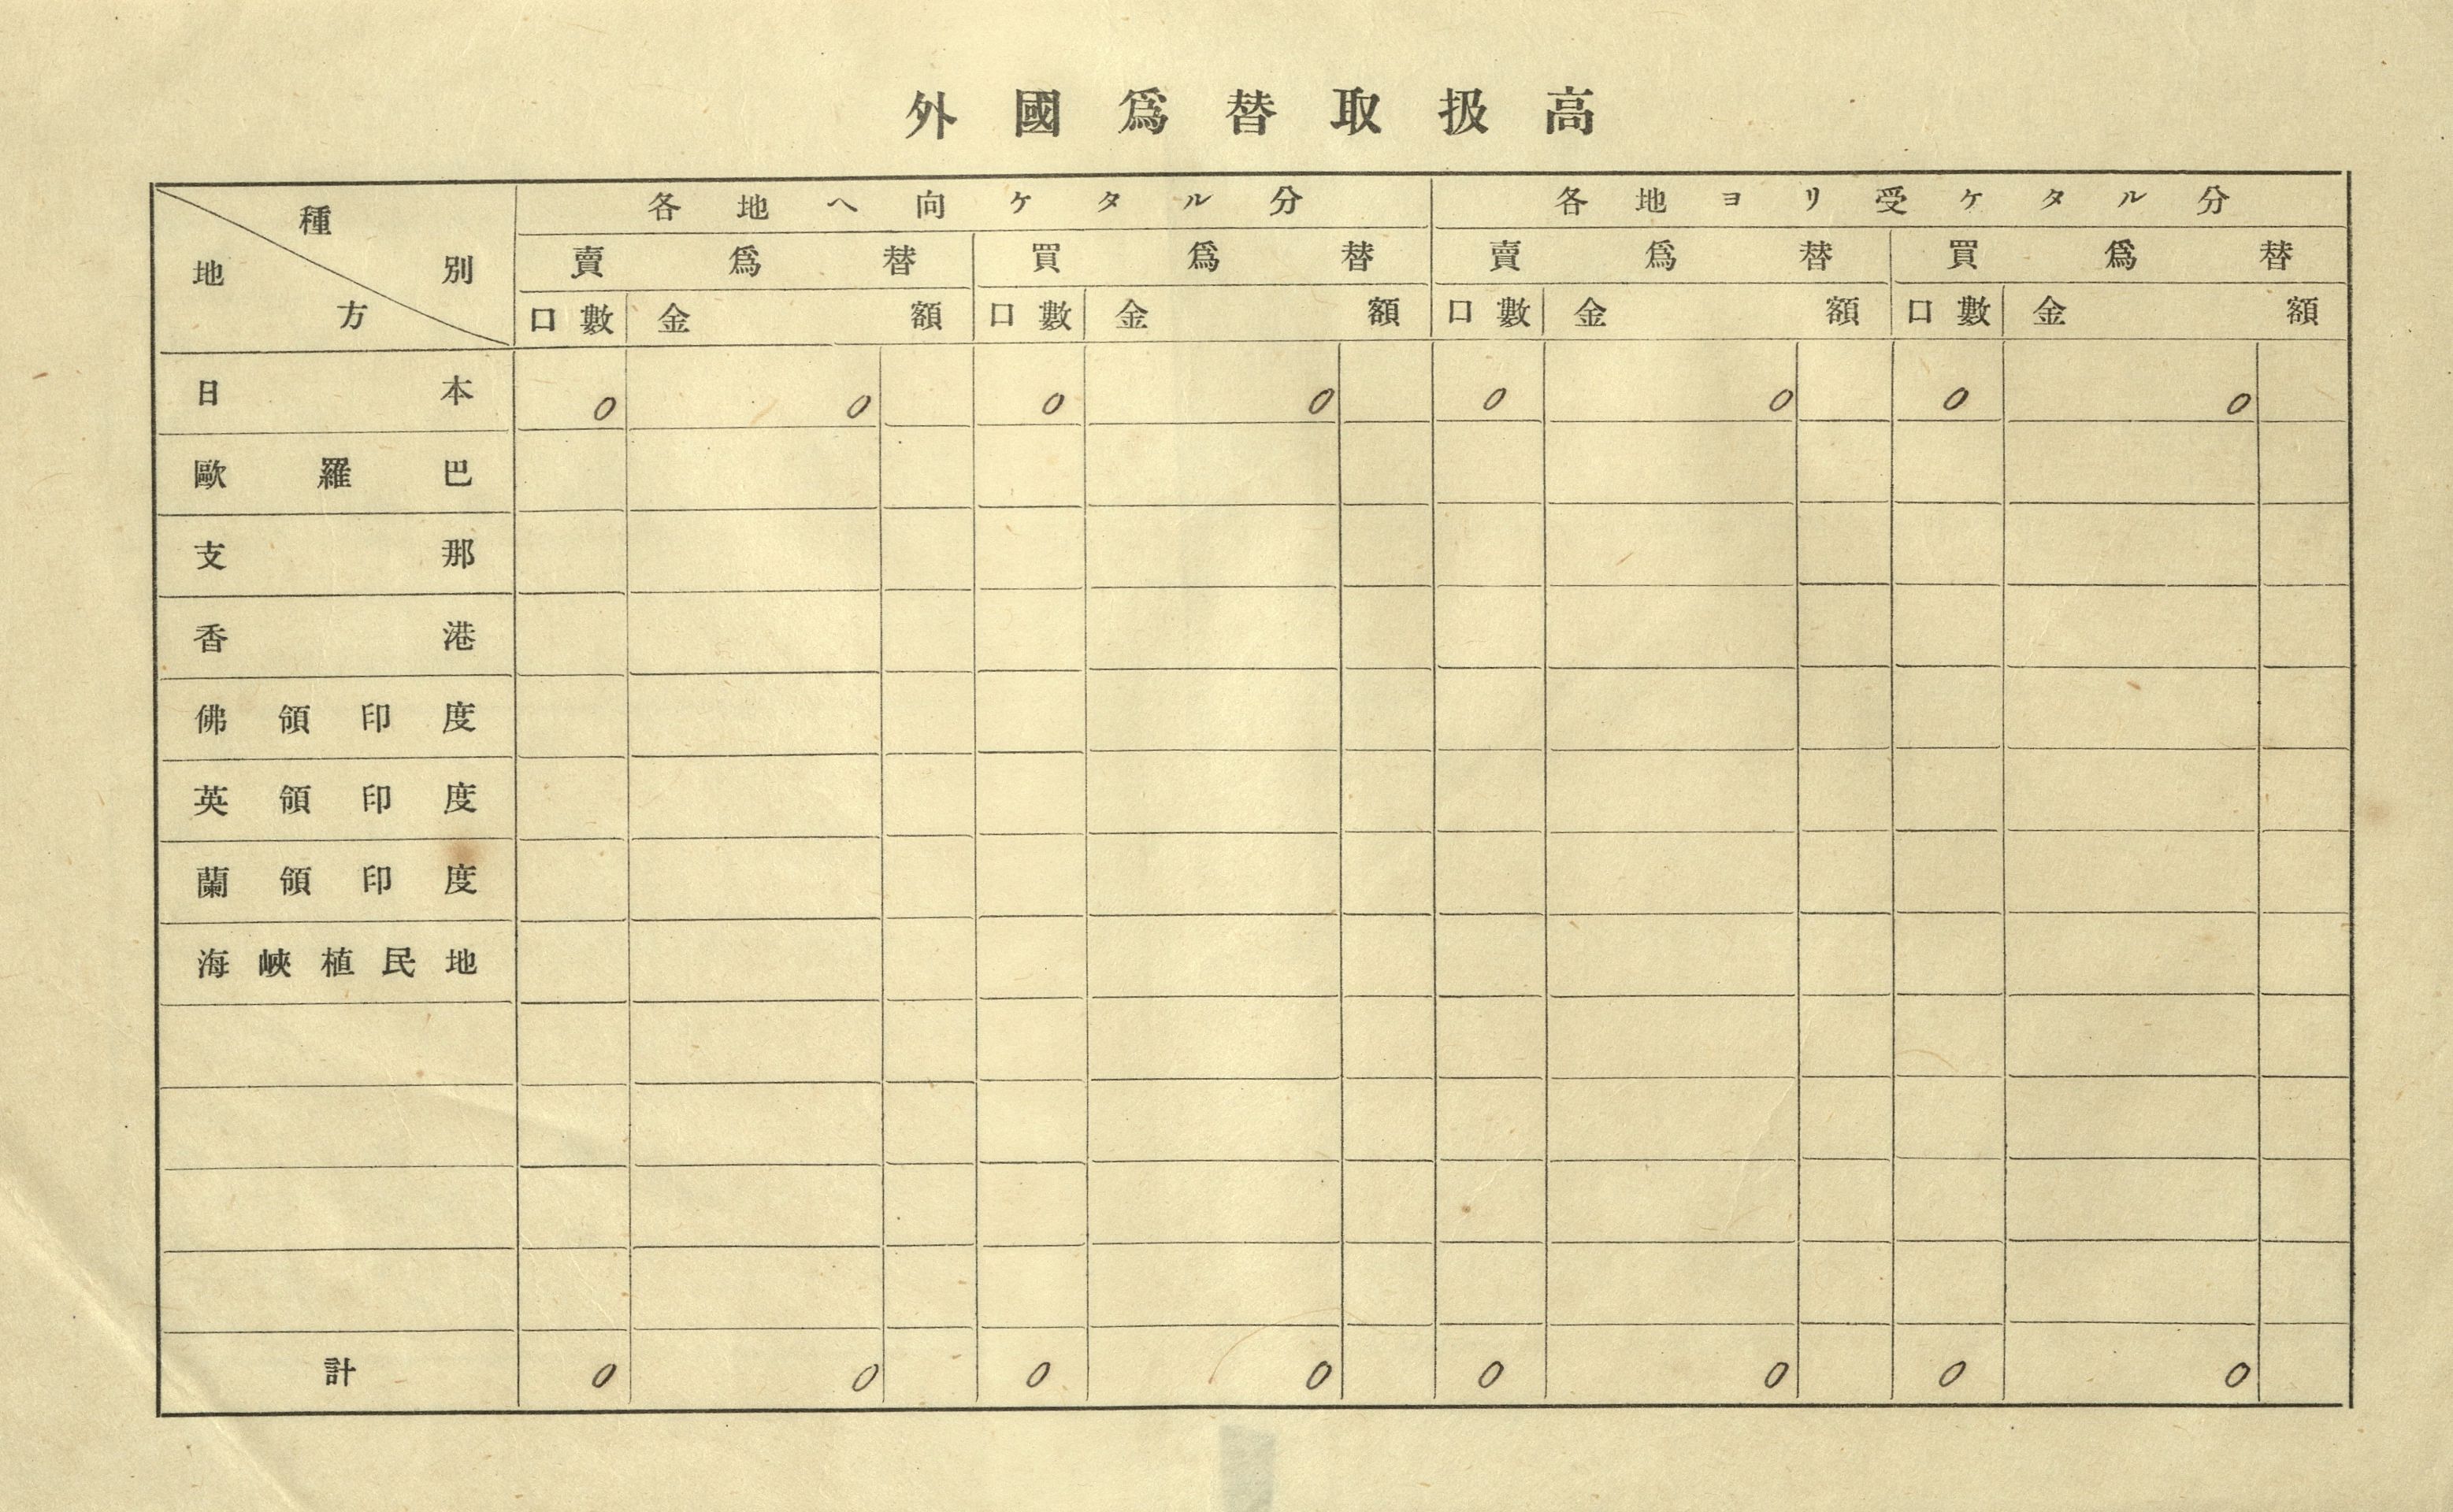 外國爲替取扱高
種別 各地ヘ向ケタル分 各地ヨリ受ケタル分
地方 賣爲替 買爲替 賣爲替 買爲替
口數 金額 口數 金額 口數 金額 口數 金額
日本 0 0 0 0 0 0 0 0
歐羅巴
支那
香港
佛領印度
英領印度
蘭領印度
海峽植民地
計 0 0 0 0 0 0 0 0